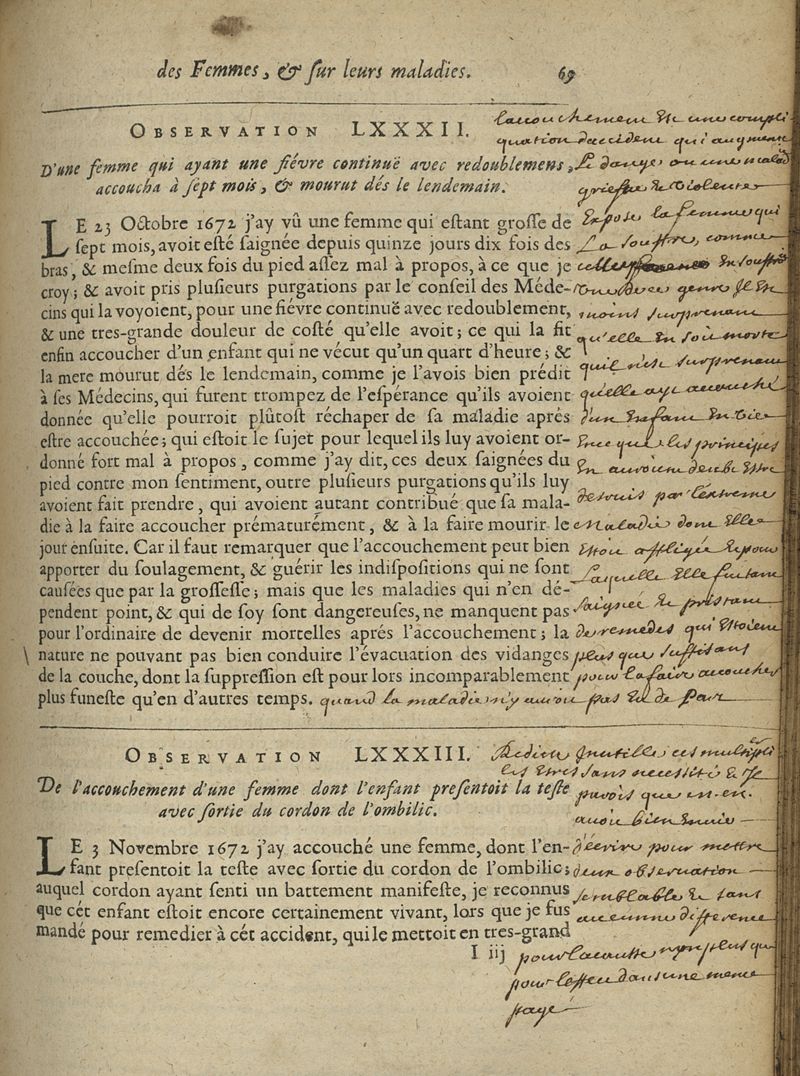 des Femmes, & sur leurs maladies. 69
OBSERVATION LXXXII.
D'une femme qui ayant une fiévre continuë avec redoublemens,
accoucha à sept mois, & mourut dés le lendemain.
LE 23 Octobre 1672 j'ay vû une femme qui estant grosse de
sept mois, avoit esté saignée depuis quinze jours dix fois des
bras, & mesme deux fois du pied assez mal à propos, à ce que je
croy; & avoit pris plusieurs purgations par le conseil des Méde-
cins qui la voyoient, pour une fiévre continuë avec redoublement,
& une tres-grande douleur de costé qu'elle avoit; ce qui la fit
enfin accoucher d'un enfant qui ne vécut qu'un quart d'heure; &
la mere mourut dés le lendemain, comme je l'avois bien prédit
à ses Médecins, qui furent trompez de l'espérance qu'ils avoient
donnée qu'elle pourroit plûtost réchaper de sa maladie aprés
estre accouchée; qui estoit le sujet pour lequel ils luy avoient or-
donné fort mal à propos, comme j'ay dit, ces deux saignées du
pied contre mon sentiment, outre plusieurs purgations qu'ils luy
avoient fait prendre, qui avoient autant contribué que sa mala-
die à la faire accoucher prématurément, & à la faire mourir le
jour ensuite. Car il faut remarquer que l'accouchement peut bien
apporter du soulagement, & guérir les indispositions qui ne sont
causées que par la grossesse; mais que les maladies qui n'en dé-
pendent point, & qui de soy sont dangereuses, ne manquent pas
pour l'ordinaire de devenir mortelles aprés l'accouchement; la
nature ne pouvant pas bien conduire l'évacuation des vidanges
de la couche, dont la suppression est pour lors incomparablement
plus funeste qu'en d'autres temps. quand la maladie n'y auroit pas
OBSERVATION LXXXIII.
De l'accouchement d'une femme dont l'enfant presentoit la teste
avec sortie du cordon de l'ombilic.
LE 3 Novembre 1672 j'ay accouché une femme, dont l'en-
fant presentoit la teste avec sortie du cordon de l'ombilic;
auquel cordon ayant senti un battement manifeste, je reconnus
que cét enfant estoit encore certainement vivant, lors que je fus
mandé pour remedier à cét accident, qui le mettoit en tres-grand
I iij
expose la femme qui
la souffre, comme
moins surprenant
qu'elle en soit morte
qu'il n'est surprenant
d'un enfant en vie
maladie dont elle
estoit affligée & pour
laquelle elle
de remedes qui estoient
plus que suffisans
pour la faire accoucher
d'écrire pour mettre
d'une observation
semblable & sans
aucune difference
dans une meme
page